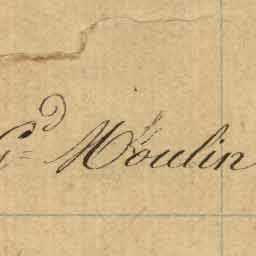 Gd Moulin